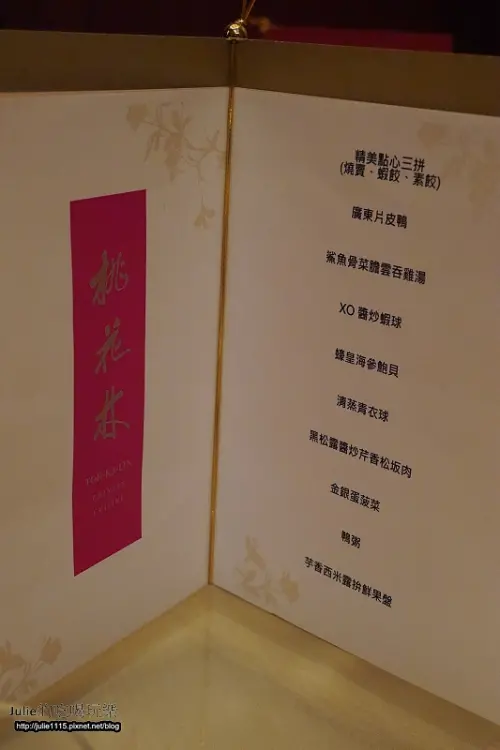 桃花林
TOH-KA-LIN
CHINESE
CUISINE
精美點心三拼
(燒賣、蝦餃、素餃)
廣東片皮鴨
鯊魚骨菜膽雲吞雞湯
XO 醬炒蝦球
蠔皇海參鮑貝
清蒸青衣球
黑松露醬炒芹香松坂肉
金銀蛋菠菜
鴨粥
芋香西米露拚鮮果盤
Julie
http://julie1115.pixnet.net/blog